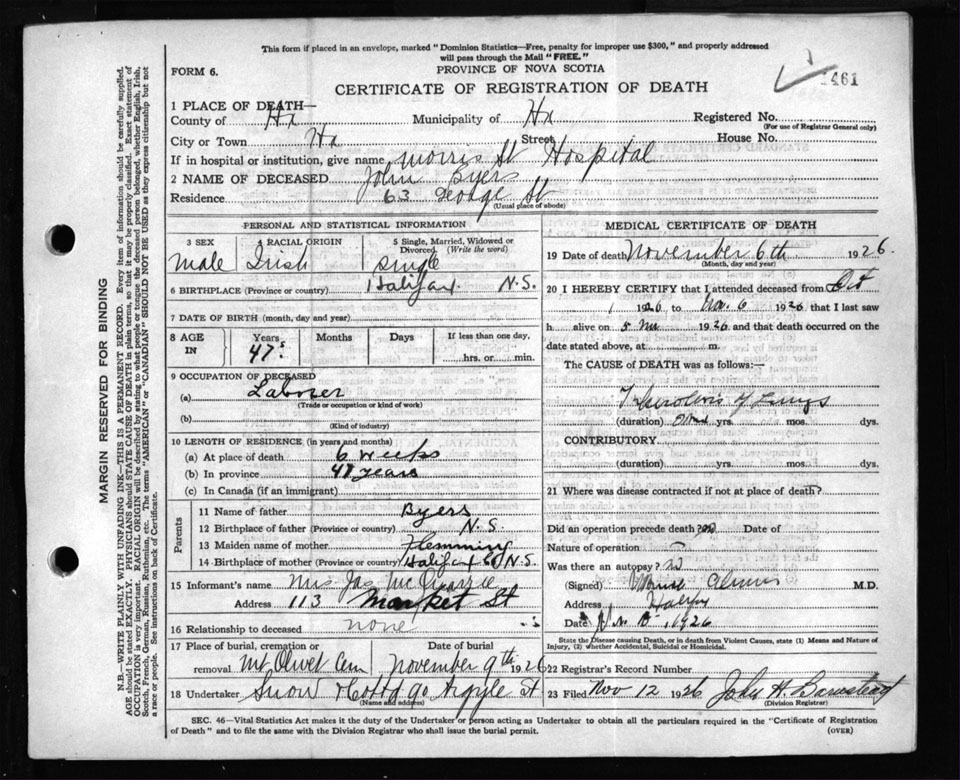 This form if placed in an envelope, marked "Dominion Statistics—Free, penalty for improper use $300," and properly addressed
will pass through the Mail "FREE."
PROVINCE OF NOVA SCOTIA
FORM 6.
461
CERTIFICATE OF REGISTRATION OF DEATH
1 PLACE OF DEATH—
County of Hx Municipality of Hx Registered No.
(For use of Registrar General only)
City or Town Hx Street House No.
If in hospital or institution, give name Morris St Hospital
2 NAME OF DECEASED John Byers
Residence 63 George St
(Usual place of abode)
PERSONAL AND STATISTICAL INFORMATION
3 SEX 4 RACIAL ORIGIN 5 Single, Married, Widowed or Divorced (Write the word)
male Irish single
6 BIRTHPLACE (Province or Country) Halifax N.S.
7 DATE OF BIRTH (month, day and year)
8 AGE IN Years Months Days If less than one day,
47 hrs. or min.
9 OCCUPATION OF DECEASED
(a) Laborer
(Trade or occupation or kind of work)
(b)
(Kind of industry)
10 LENGTH OF RESIDENCE (in years and months)
(a) At place of death 6 weeks
(b) In province 47 years
(c) In Canada (if an immigrant)
Parents
11 Name of father Byers
12 Birthplace of father (Province or country) N.S.
13 Maiden name of mother Flemming
14 Birthplace of mother (Province or country) Halifax N.S.
15 Informant's name Mrs Jas
Address 113 Market St
16 Relationship to deceased none
17 Place of burial, cremation or
removal Mt Olivet Cem November 9th 1926
18 Undertaker Snow 90 Argyle St
(Name and address)
MEDICAL CERTIFICATE OF DEATH
19 Date of death November 6th 1926
(Month, day and year)
20 I HEREBY CERTIFY that I attended deceased from Oct
1 1926 to Nov. 6 1926 that I last saw
h alive on 5 1926 and that death occurred on
date stated above, at m.
The CAUSE OF DEATH was as follows:—
of Lungs
(duration) yrs. mos. dys.
CONTRIBUTORY
(duration) yrs. mos. dys.
21 Where was disease contracted if not at place of death?
Did an operation precede death? no Date of
Nature of operation
Was there an autopsy? no
(Signed) M.D.
Address Halifax
Date 1926
State the Disease causing Death, or in death from Violent Causes, state (1) Means and Nature of
Injury, (2) whether Accidental, Suicidal or Homicidal.
22 Registrar's Record Number
23 Filed Nov 12 1926 John H. Barnstead
(Division Registrar)
SEC. 46—Vital Statistics Act makes it the duty of the Undertaker or person acting as Undertaker to obtain all the particulars required in the "Certificate of Registration
of Death" and to file the same with the Division Registrar who shall issue the burial permit. (OVER)
MARGIN RESERVED FOR BINDING
N.B.—WRITE PLAINLY WITH UNFADING INK—THIS IS A PERMANENT RECORD. Every item of information should be carefully supplied.
AGE should be stated EXACTLY. PHYSICIANS should STATE CAUSE OF DEATH in plain terms, so that it may be properly classified. Exact statement of
OCCUPATION is very important. RACIAL ORIGIN will be described by stating to what people or tongue the deceased person belonged, whether English, Irish,
Scotch, French, German, Russian, Ruthenian, etc. The terms "AMERICAN" or "CANADIAN" SHOULD NOT BE USED as they express citizenship but not
a race or people. See instructions on back of Certificate.